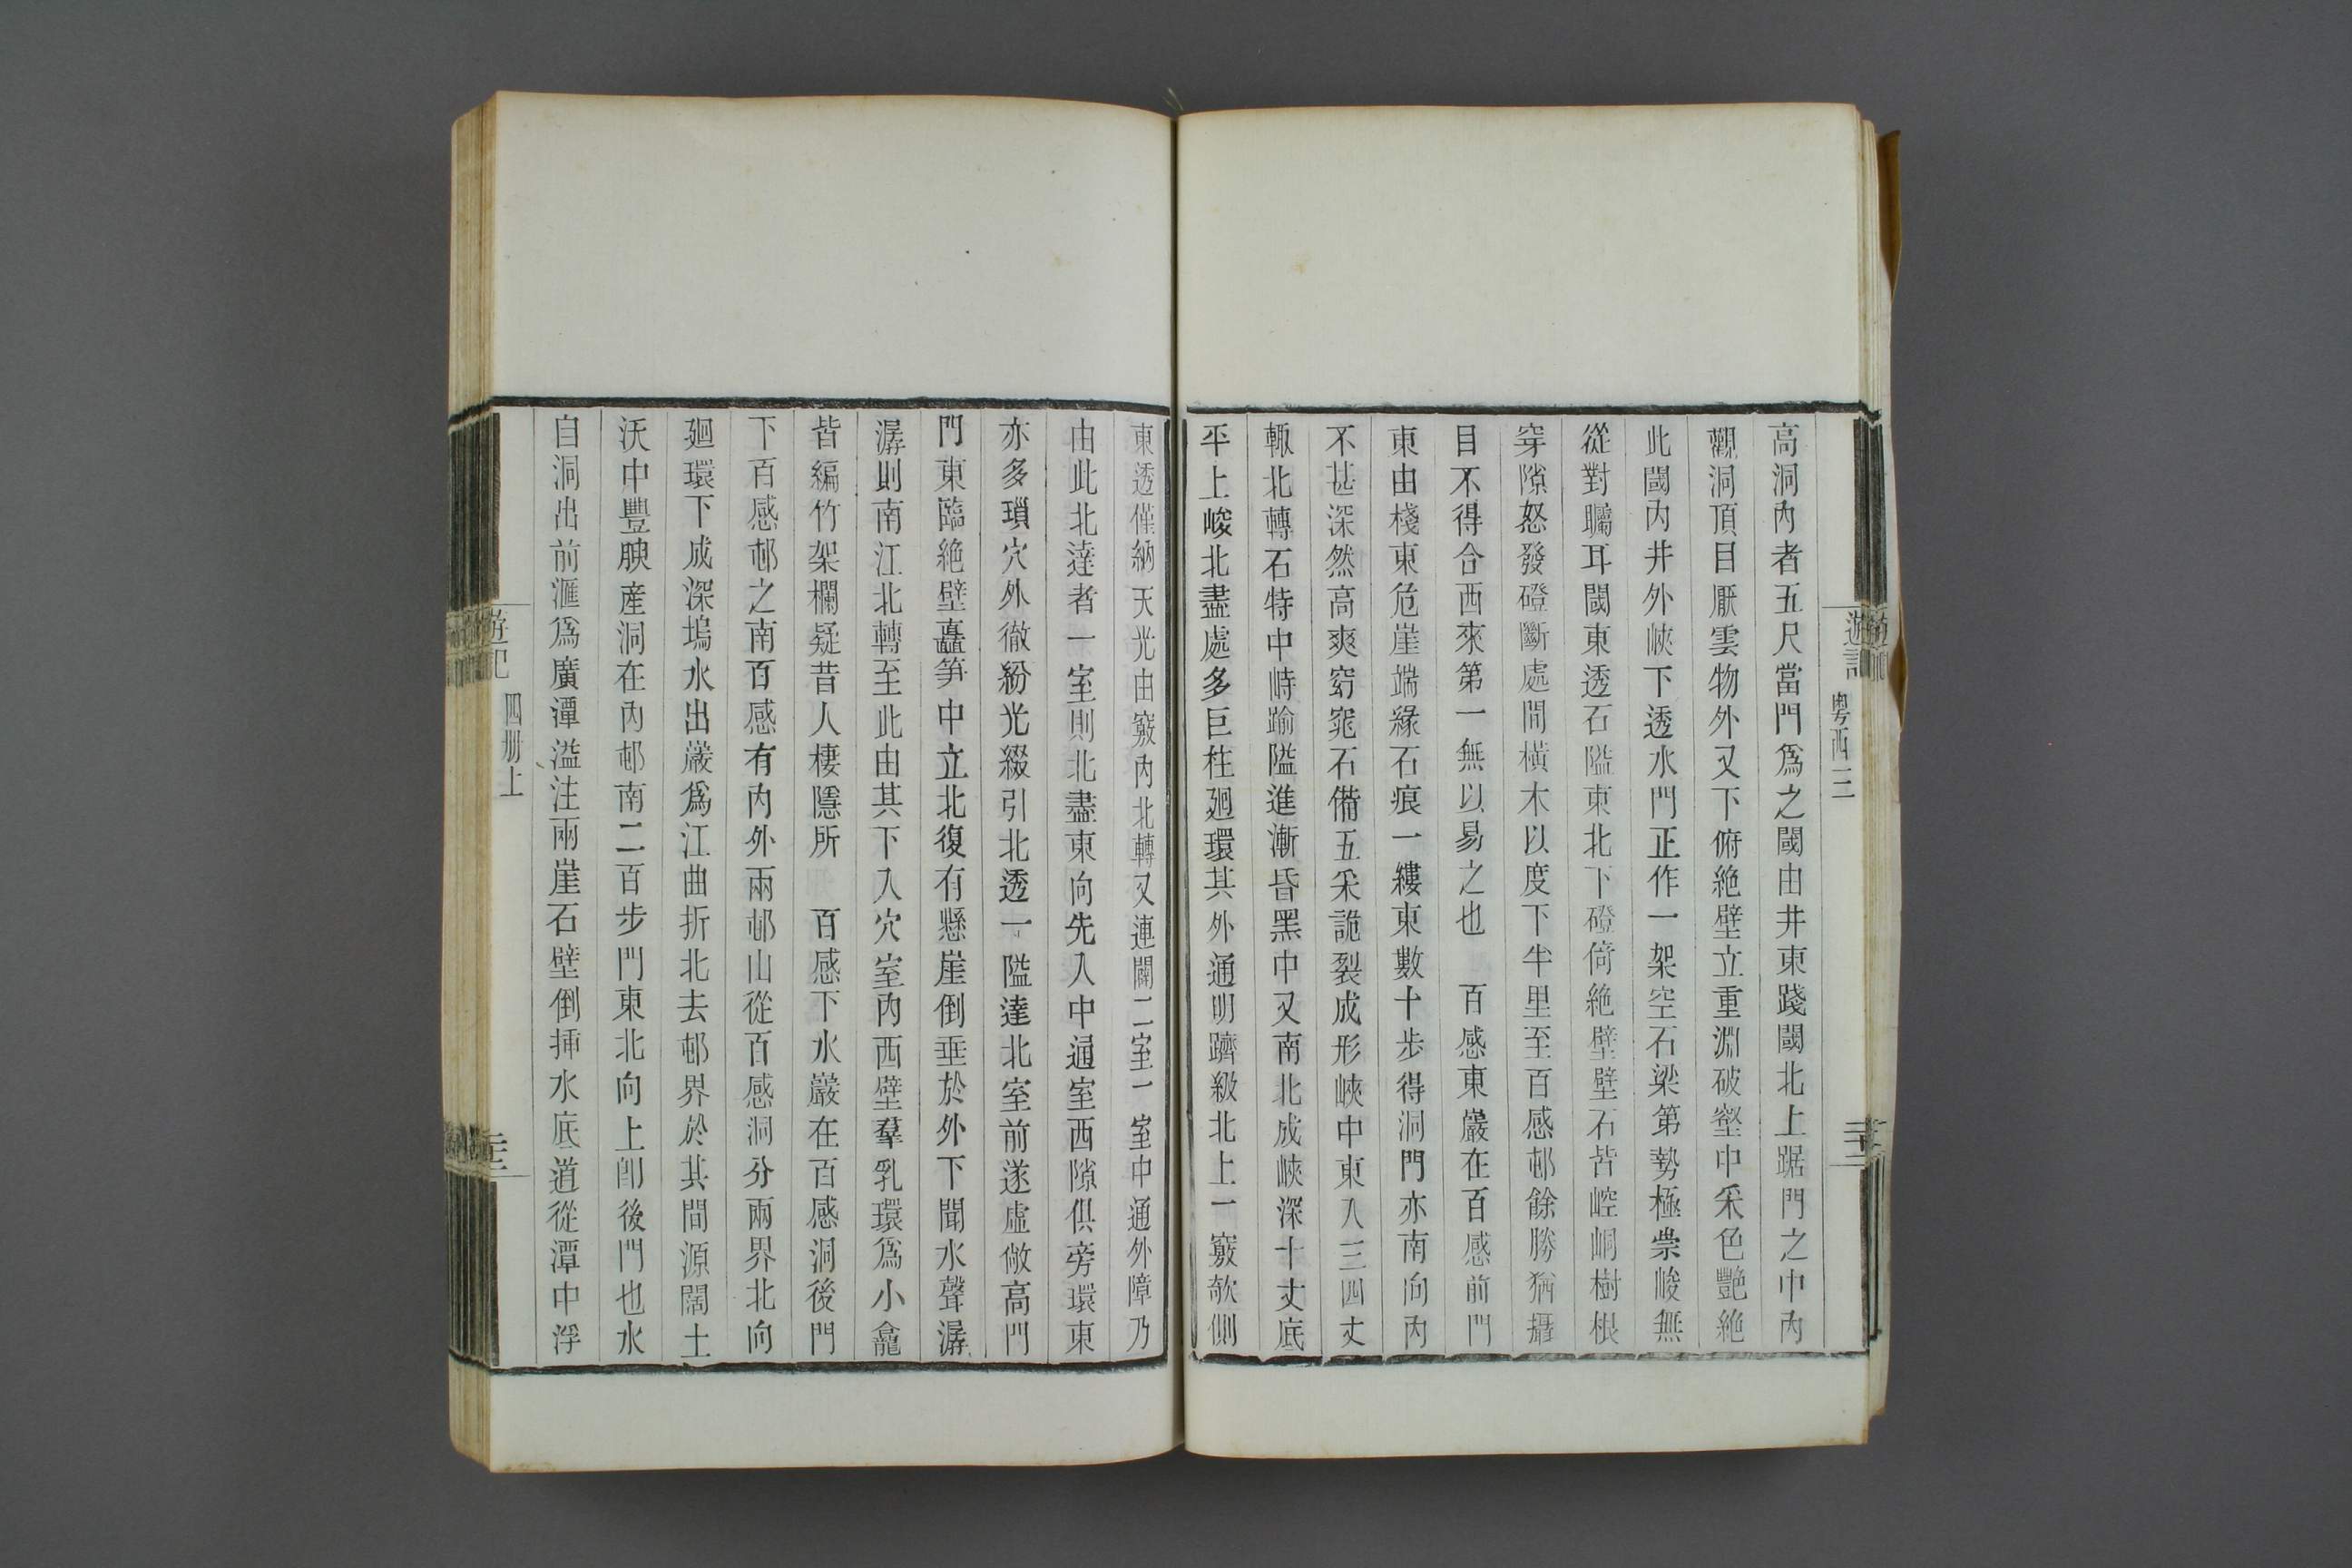 遊記 粵西三
高洞內者五尺當門爲之閾由井東踐閾北上踞門之中內
觀洞頂目厭雲物外又下俯絶壁立重淵破壑中采色艷絶
此閾內井外峽下透水門正作一架空石梁第勢極崇峻無
從對矚耳閾東透石隘東北下磴倚絶壁壁石皆崆峒樹根
穿隙怒發磴斷處間橫木以度下半里至百感邨餘勝猶攝
目不得合西來第一無以易之也 百感東巖在百感前門
東由棧東危崖端緣石痕一縷東數十步得洞門亦南向內
不甚深然高爽窈窕石備五采詭裂成形峽中東入三四丈
輙北轉石特中峙踰隘進漸昏黑中又南北成峽深十丈底
平上峻北盡處多巨柱廻環其外通明躋級北上一竅欹側
東透僅納天光由竅內北轉又連闢二室一室中通外障乃
由此北達者一室則北盡東向先入中通室西隙俱旁環東
亦多瑣穴外徹紛光綴引北透一隘達北室前遂虛敞高門
門東臨絶壁矗笋中立北復有懸崖倒垂於外下聞水聲潺
潺則南江北轉至此由其下入穴室內西壁羣乳環爲小龕
皆編竹架欄疑昔人棲隱所 百感下水巖在百感洞後門
下百感邨之南百感有內外兩邨山從百感洞分兩界北向
廻環下成深塢水出巖爲江曲折北去邨界於其間源闊土
沃中豐腴産洞在內邨南二百步門東北向上卽後門也水
自洞出前滙爲廣潭溢注兩崖石壁倒揷水底道從潭中浮
遊記 四册上